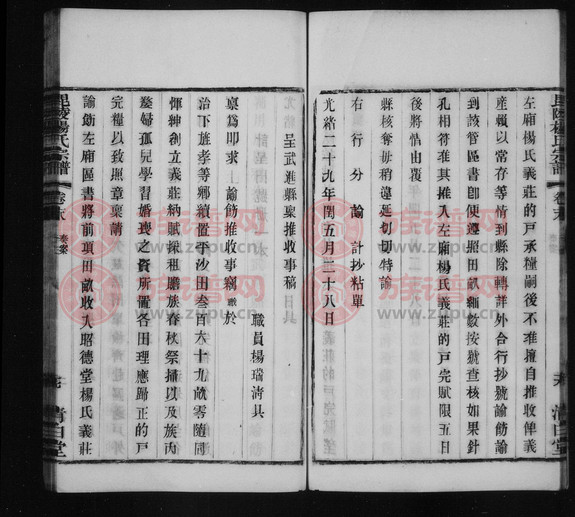 毘陵楊氏宗譜 卷末 奏案 清白堂
左廂楊氏義莊的戶承糧嗣後不准擅自推收俾義
產藉以常存等情到縣除轉詳外合行抄號諭飭諭
到該管區書卽便遵照田畝細數按號查核如果針
孔相符准其推入左廂楊氏義莊的戶完賦限五日
後將情由覆
縣核奪毋稍違延切切特諭
右行分諭 計抄粘單
光緒二十九年閏五月二十八日
呈武進縣稟推收事稿日具
職員楊瑞清具
稟爲叩求上諭飭推收事竊 職 於
治下旌孝等鄉續置平沙田叁百六十九畝零隨同
惲紳創立義莊納賦採租贍族春秋祭掃以及族內
嫠婦孤兒學習婚喪之資所置各田理應歸正的戶
完糧以致照章稟請
諭飭左廂區書將前項田畝收入昭德堂楊氏義莊
毘陵楊氏宗譜 卷末 奏案 清白堂
族譜网
www.zupu.cn